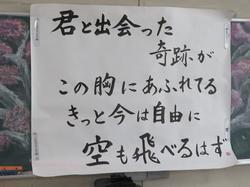 君と出会った
奇跡が
この胸にあふれてる
きっと今は自由に
空も飛べるはず